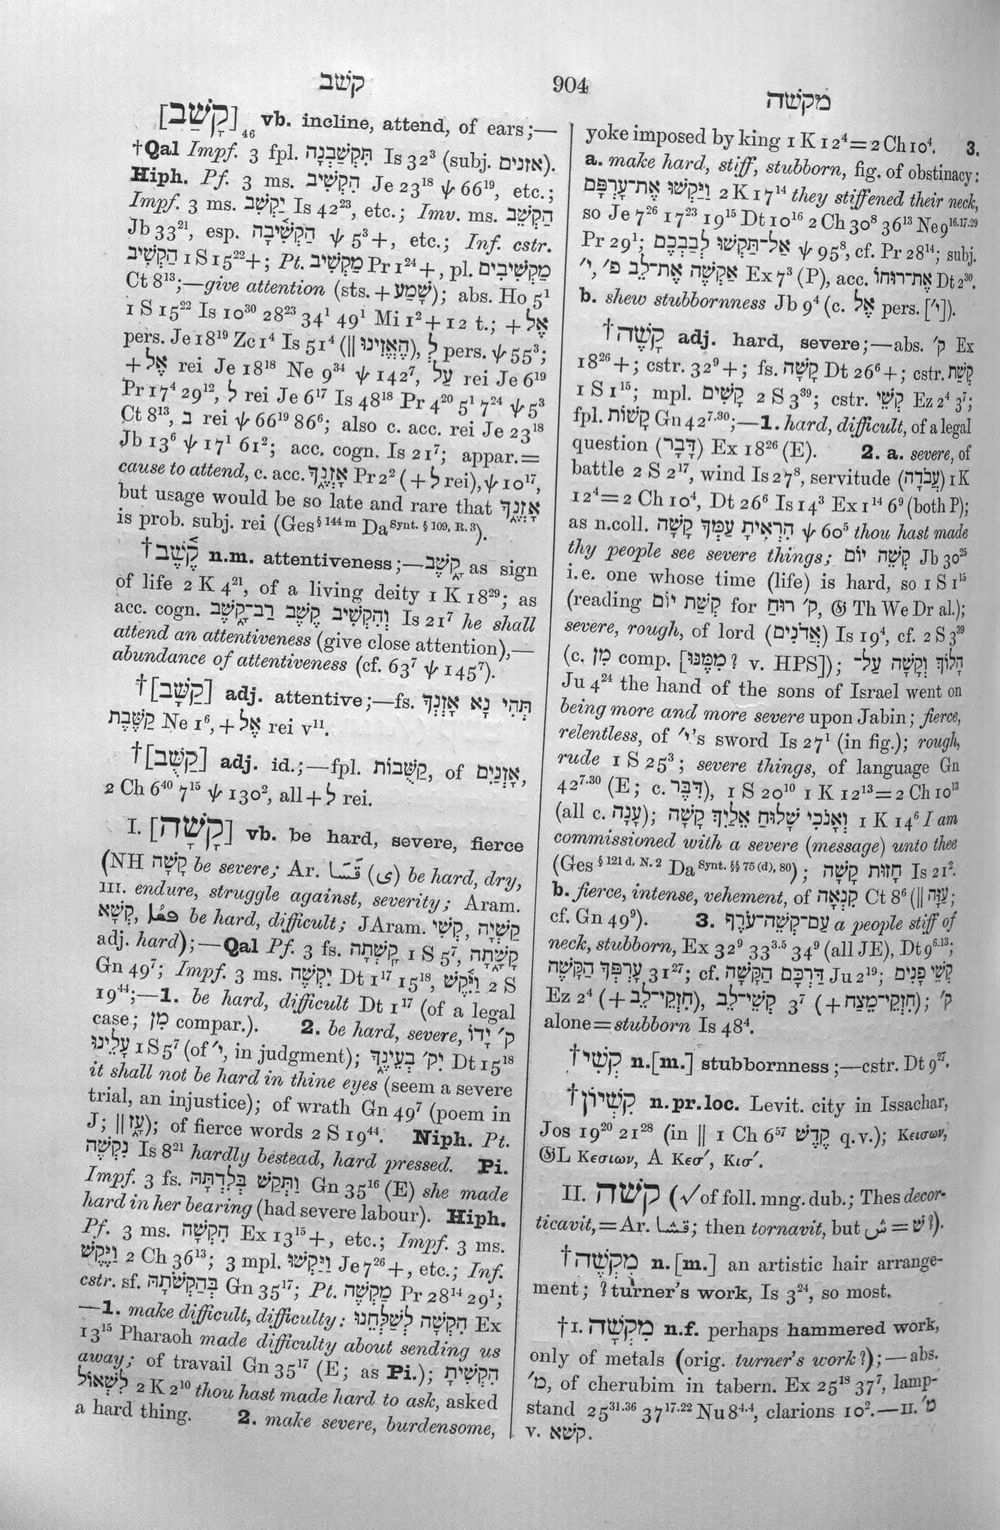 קשׁב
904
מקשׁה
[קָשַׁב]₄₆ vb. incline, attend, of ears;—
†Qal Impf. 3 fpl. תִּקְשַׁבְנָה Is 32³ (subj. אזנים).
Hiph. Pf. 3 ms. הִקְשִׁיב Je 23¹⁸ ψ 66¹⁹, etc.;
Impf. 3 ms. יַקְשֵׁב Is 42²³, etc.; Imv. ms. הַקְשֵׁב
Jb 33²¹, esp. הַקְשִׁיבָה ψ 5³+, etc.; Inf. cstr.
הַקְשִׁיב 1 S 15²²+; Pt. מַקְשִׁיב Pr 1²⁴+, pl. מַקְשִׁיבִים
Ct 8¹³;—give attention (sts. + שָׁמַע); abs. Ho 5¹
1 S 15²² Is 10³⁰ 28²³ 34¹ 49¹ Mi 1²+12 t.; + אֶל
pers. Je 18¹⁹ Zc 1⁴ Is 51⁴ (‖ הַאֲזִינוּ), לְ pers. ψ 55³;
+ אֶל rei Je 18¹⁸ Ne 9³⁴ ψ 142⁷, עַל rei Je 6¹⁹
Pr 17⁴ 29¹², לְ rei Je 6¹⁷ Is 48¹⁸ Pr 4²⁰ 5¹ 7²⁴ ψ 5³
Ct 8¹³, בְּ rei ψ 66¹⁹ 86⁶; also c. acc. rei Je 23¹⁸
Jb 13⁶ ψ 17¹ 61²; acc. cogn. Is 21⁷; appar.=
cause to attend, c. acc. אָזְנֶךָ Pr 2² (+ לְ rei), ψ 10¹⁷,
but usage would be so late and rare that אָזְנֶךָ
is prob. subj. rei (Ges§ 144 m Da Synt. § 109, R. 3).
†קֶשֶׁב n.m. attentiveness;—קָשֶׁב as sign
of life 2 K 4²¹, of a living deity 1 K 18²⁹; as
acc. cogn. וְהִקְשִׁיב קֶשֶׁב רַב־קָשֶׁב Is 21⁷ he shall
attend an attentiveness (give close attention),—
abundance of attentiveness (cf. 63⁷ ψ 145⁷).
†[קַשָּׁב] adj. attentive;—fs. תְּהִי נָא אָזְנְךָ
קַשֶּׁבֶת Ne 1⁶, + אֶל rei v¹¹.
†[קַשֻּׁב] adj. id.;—fpl. קַשֻּׁבוֹת, of אָזְנַיִם,
2 Ch 6⁴⁰ 7¹⁵ ψ 130², all + לְ rei.
I. [קָשָׁה] vb. be hard, severe, fierce
(NH קָשָׁה be severe; Ar. قَسَا (ى) be hard, dry,
III. endure, struggle against, severity; Aram.
קְשָׁא, ܩܫܐ be hard, difficult; JAram. קְשֵׁי, קַשְׁיָה
adj. hard);—Qal Pf. 3 fs. קָשְׁתָה 1 S 5⁷, קָשָׁתָה
Gn 49⁷; Impf. 3 ms. יִקְשֶׁה Dt 1¹⁷ 15¹⁸, וַיִּקֶשׁ 2 S
19⁴⁴;—1. be hard, difficult Dt 1¹⁷ (of a legal
case; מִן compar.). 2. be hard, severe, ק׳ יָדוֹ
עָלֵינוּ 1 S 5⁷ (of י׳, in judgment); יִק׳ בְּעֵינֶךָ Dt 15¹⁸
it shall not be hard in thine eyes (seem a severe
trial, an injustice); of wrath Gn 49⁷ (poem in
J; ‖ עָז); of fierce words 2 S 19⁴⁴. Niph. Pt.
נִקְשֶׁה Is 8²¹ hardly bestead, hard pressed. Pi.
Impf. 3 fs. וַתְּקַשׁ בְּלִדְתָּהּ Gn 35¹⁶ (E) she made
hard in her bearing (had severe labour). Hiph.
Pf. 3 ms. הִקְשָׁה Ex 13¹⁵+, etc.; Impf. 3 ms.
וַיֶּקֶשׁ 2 Ch 36¹³; 3 mpl. וַיַּקְשׁוּ Je 7²⁶+, etc.; Inf.
cstr. sf. בְּהַקְשֹׁתָהּ Gn 35¹⁷; Pt. מַקְשֶׁה Pr 28¹⁴ 29¹;
—1. make difficult, difficulty: הִקְשָׁה לְשַׁלְּחֵנוּ Ex
13¹⁵ Pharaoh made difficulty about sending us
away; of travail Gn 35¹⁷ (E; as Pi.); הִקְשִׁיתָ
לִשְׁאוֹל 2 K 2¹⁰ thou hast made hard to ask, asked
a hard thing. 2. make severe, burdensome,
yoke imposed by king 1 K 12⁴=2 Ch 10⁴. 3.
a. make hard, stiff, stubborn, fig. of obstinacy:
וַיַּקְשׁוּ אֶת־עָרְפָּם 2 K 17¹⁴ they stiffened their neck,
so Je 7²⁶ 17²³ 19¹⁵ Dt 10¹⁶ 2 Ch 30⁸ 36¹³ Ne 9¹⁶·¹⁷·²⁹
Pr 29¹; אַל־תַּקְשׁוּ לְבַבְכֶם ψ 95⁸, cf. Pr 28¹⁴; subj.
י׳, אַקְשֶׁה אֶת־לֵב פ׳ Ex 7³ (P), acc. אֶת־רוּחוֹ Dt 2³⁰.
b. shew stubbornness Jb 9⁴ (c. אֶל pers. [י׳]).
†קָשֶׁה adj. hard, severe;—abs. ק׳ Ex
18²⁶+; cstr. 32⁹+; fs. קָשָׁה Dt 26⁶+; cstr. קְשַׁת
1 S 1¹⁵; mpl. קָשִׁים 2 S 3³⁹; cstr. קְשֵׁי Ez 2⁴ 3⁷;
fpl. קָשׁוֹת Gn 42⁷·³⁰;—1. hard, difficult, of a legal
question (דָּבָר) Ex 18²⁶ (E). 2. a. severe, of
battle 2 S 2¹⁷, wind Is 27⁸, servitude (עֲבֹדָה) 1 K
12⁴=2 Ch 10⁴, Dt 26⁶ Is 14³ Ex 1¹⁴ 6⁹ (both P);
as n.coll. הִרְאִיתָ עַמְּךָ קָשָׁה ψ 60⁵ thou hast made
thy people see severe things; קְשֵׁה יוֹם Jb 30²⁵
i.e. one whose time (life) is hard, so 1 S 1¹⁵
(reading קְשַׁת יוֹם for ק׳ רוּחַ, 𝔊 Th We Dr al.);
severe, rough, of lord (אֲדֹנִים) Is 19⁴, cf. 2 S 3³⁹
(c. מִן comp. [מִמֶּנּוּ? v. HPS]); הָלוֹךְ וְקָשָׁה עַל־
Ju 4²⁴ the hand of the sons of Israel went on
being more and more severe upon Jabin; fierce,
relentless, of י׳'s sword Is 27¹ (in fig.); rough,
rude 1 S 25³; severe things, of language Gn
42⁷·³⁰ (E; c. דִּבֶּר), 1 S 20¹⁰ 1 K 12¹³=2 Ch 10¹³
(all c. עָנָה); וְאָנֹכִי שָׁלוּחַ אֵלַיִךְ קָשָׁה 1 K 14⁶ I am
commissioned with a severe (message) unto thee
(Ges § 121 d, N. 2 Da Synt. §§ 75 (d), 80); חָזוּת קָשָׁה Is 21².
b. fierce, intense, vehement, of קִנְאָה Ct 8⁶ (‖ עַזָּה;
cf. Gn 49⁹). 3. עַם־קְשֵׁה־עֹרֶף a people stiff of
neck, stubborn, Ex 32⁹ 33³·⁵ 34⁹ (all JE), Dt 9⁶·¹³;
עָרְפְּךָ הַקָּשֶׁה 31²⁷; cf. דַּרְכָּם הַקָּשָׁה Ju 2¹⁹; קְשֵׁי פָנִים
Ez 2⁴ (+ חִזְקֵי־לֵב), קְשֵׁי־לֵב 3⁷ (+ חִזְקֵי־מֵצַח); ק׳
alone=stubborn Is 48⁴.
†קְשִׁי n.[m.] stubbornness;—cstr. Dt 9²⁷.
†קִשְׁיוֹן n.pr.loc. Levit. city in Issachar,
Jos 19²⁰ 21²⁸ (in ‖ 1 Ch 6⁵⁷ קֶדֶשׁ q.v.); Κεισων,
𝔊L Κεσιων, A Κεσ′, Κισ′.
II. קשׁה (√ of foll. mng. dub.; Thes decor-
ticavit,=Ar. قشا; then tornavit, but ش=שׁ?).
†מִקְשֶׁה n.[m.] an artistic hair arrange-
ment; ? turner's work, Is 3²⁴, so most.
†I. מִקְשָׁה n.f. perhaps hammered work,
only of metals (orig. turner's work?);—abs.
מ׳, of cherubim in tabern. Ex 25¹⁸ 37⁷, lamp-
stand 25³¹·³⁶ 37¹⁷·²² Nu 8⁴·⁴, clarions 10².—II. מ׳
v. קשׁא.